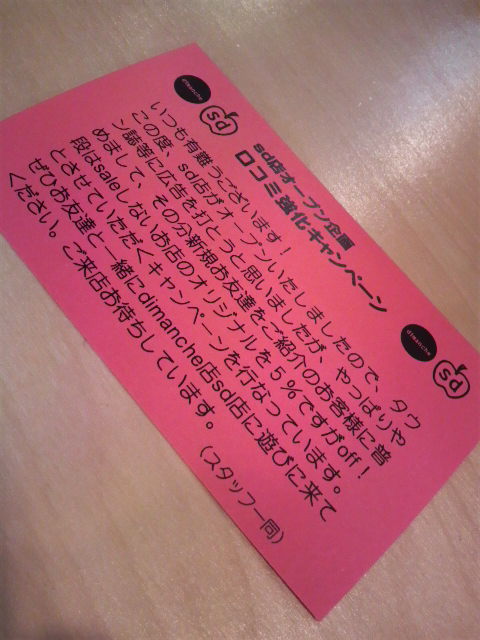 dimanche
sd
sd店オープン企画
口コミ強化キャンペーン
dimanche
sd
いつも有難うございます!
この度、sd店がオープンいたしましたので、タウ
ン誌等に広告を打とうと思いましたが、やっぱりや
めまして、その分新規お友達をご紹介のお客様に普
段はsaleしないお店のオリジナルを5%ですがoff!
とさせていただくキャンペーンを行なっています。
ぜひお友達と一緒にdimanche店sd店に遊びに来て
ください。ご来店お待ちしています。
(スタッフ一同)